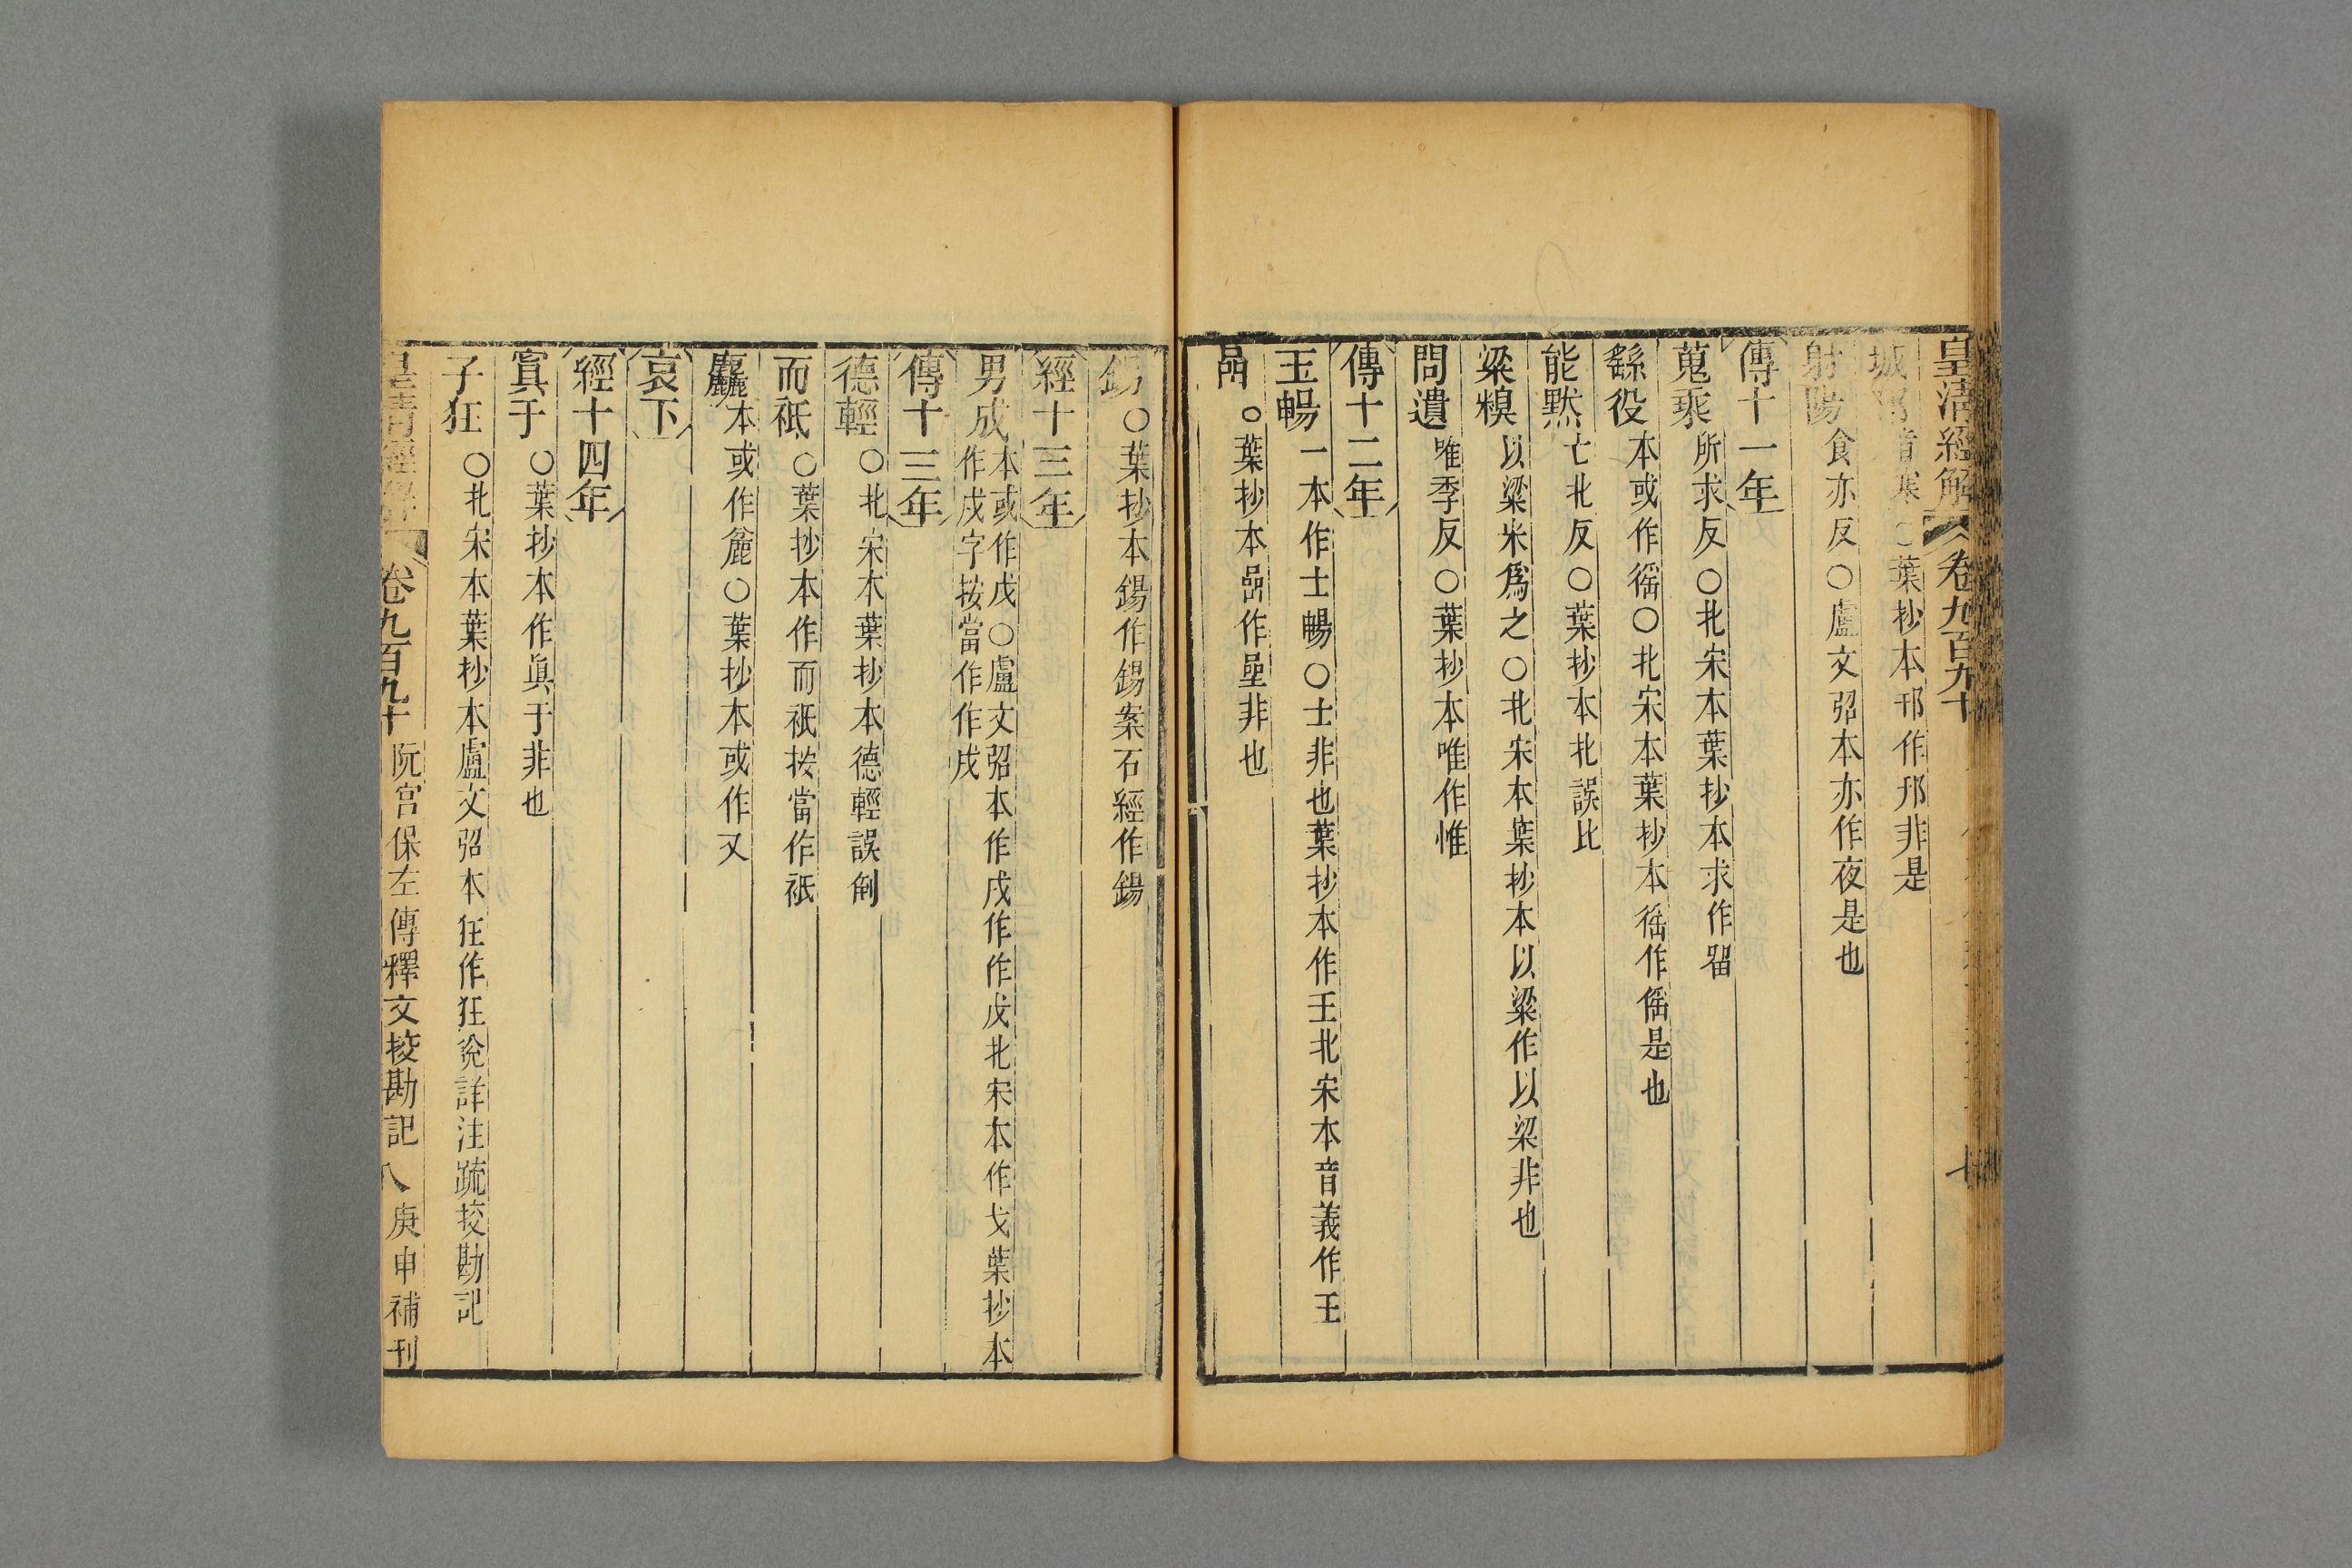 皇清經解 卷九百九十 七
城邗音寒○葉抄本邗作邘非是
射陽食亦反○盧文弨本亦作夜是也
傳十一年
蒐乘所求反○北宋本葉抄本求作留
繇役本或作徭○北宋本葉抄本徭作傜是也
能默亡北反○葉抄本北誤比
粱糗以粱米爲之○北宋本葉抄本以粱作以梁非也
問遺唯季反○葉抄本唯作惟
傳十二年
王暢一本作士暢○士非也葉抄本作王北宋本音義作王
嵒○葉抄本嵒作壘非也
鍚○葉抄本鍚作錫案石經作鍚
經十三年
男成本或作戊○盧文弨本作戌作作戊北宋本作戈葉抄本作戍字按當作作戌
傳十三年
德輕○北宋本葉抄本德輕誤倒
而祇○葉抄本作而衹按當作祇
麤本或作麄○葉抄本或作又
哀下
經十四年
寘于○葉抄本作眞于非也
子狂○北宋本葉抄本盧文弨本狂作狂說詳注疏挍勘記
皇清經解 卷九百九十 阮宮保左傳釋文挍勘記 八 庚申補刊